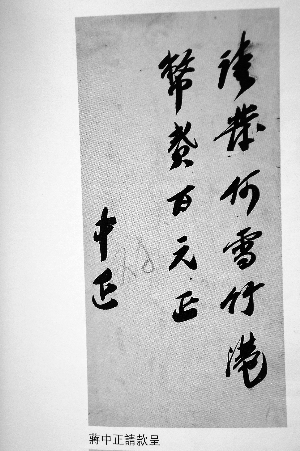 請發何雪竹港
幣貳百元正
中正
蔣中正請款呈